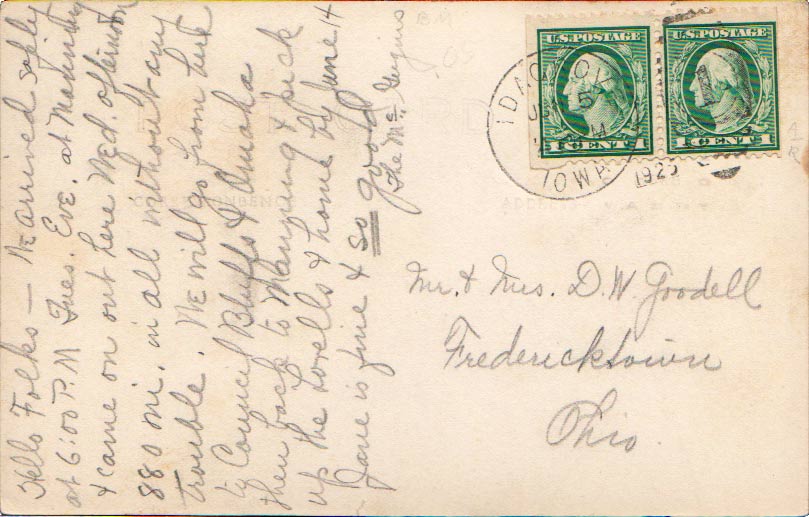 Hello Folks — We arrived safely
at 6:00 P.M Tues. Eve. at Manning
& came on out here Wed. afternoon
880 mi. in all without any
trouble. We will go from here
to Council Bluffs & Omaha
then back to Manning & pick
up the Lovells & home by June 14
Jane is fine & so good
The Mc
U.S. POSTAGE
1 CENT 1
U.S. POSTAGE
1 CENT 1
IDA GROVE
IOWA
192
Mr. & Mrs. D.W. Goodell
Fredericktown
Ohio.